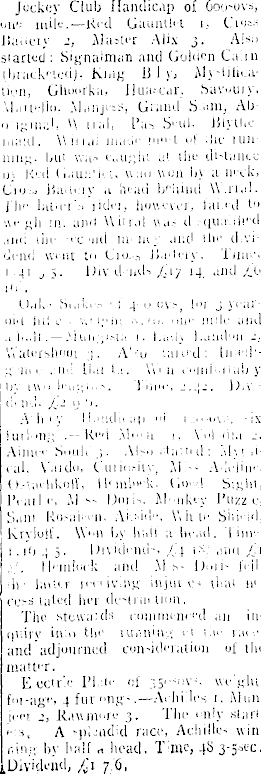 Jockey Club Handicap of 600sovs,
one mile.—Red Gauntlet 1, Cross
Battery 2, Master Alix 3. Also
started: Signalman and Golden Cairn
(bracketed), King Billy, Mystifica-
tion, Ghoorka, Huascar, Savoury,
Martello, Manjess, Grand Slam, Ab-
original, Wirral, Pas Seul, Blythe-
maid. Wirral made most of the run-
ning, but was caught at the distance
by Red Gauntlet, who won by a neck,
Cross Battery a head behind Wirral.
The latter's rider, however, failed to
weigh in, and Wirral was disqualified
and the second money and the divi-
dend went to Cross Battery. Time,
1.41 Dividends £17 14 and £6
Oaks Stakes of 400sovs, for 3-year-
old fillies weight one mile and
a half.—Mungista 1, Lady Landon 2,
Watershoot 3. Also started:
and Won comfortably
by two lengths. Time, 2.42. Divi-
dend,
Handicap of six
furlongs.—Red Moon 1, 2,
Aimee South 3. Also started:
Vardo, Curiosity, Miss Adeline,
Ostachkoff, Hemlock, Good Sight,
Pearl e, Miss Doris, Monkey Puzzle,
Sam Rosaleen, White Shield,
Kryloff. Won by half a head. Time
1.16 4 5. Dividends, £4 and £1
Hemlock and Miss Doris fell,
the latter receiving injuries that ne-
cessitated her destruction.
The stewards commenced an in-
quiry into the running of the race
and adjourned consideration of the
matter.
Electric Plate of 350sovs, weight-
for-age, 4 furlongs.—Achilles 1, Mun-
jeet 2, Rawmore 3. The only start-
ers. A splendid race, Achilles win-
ning by half a head. Time, 48 3-5sec.
Dividend, £1 7 6.